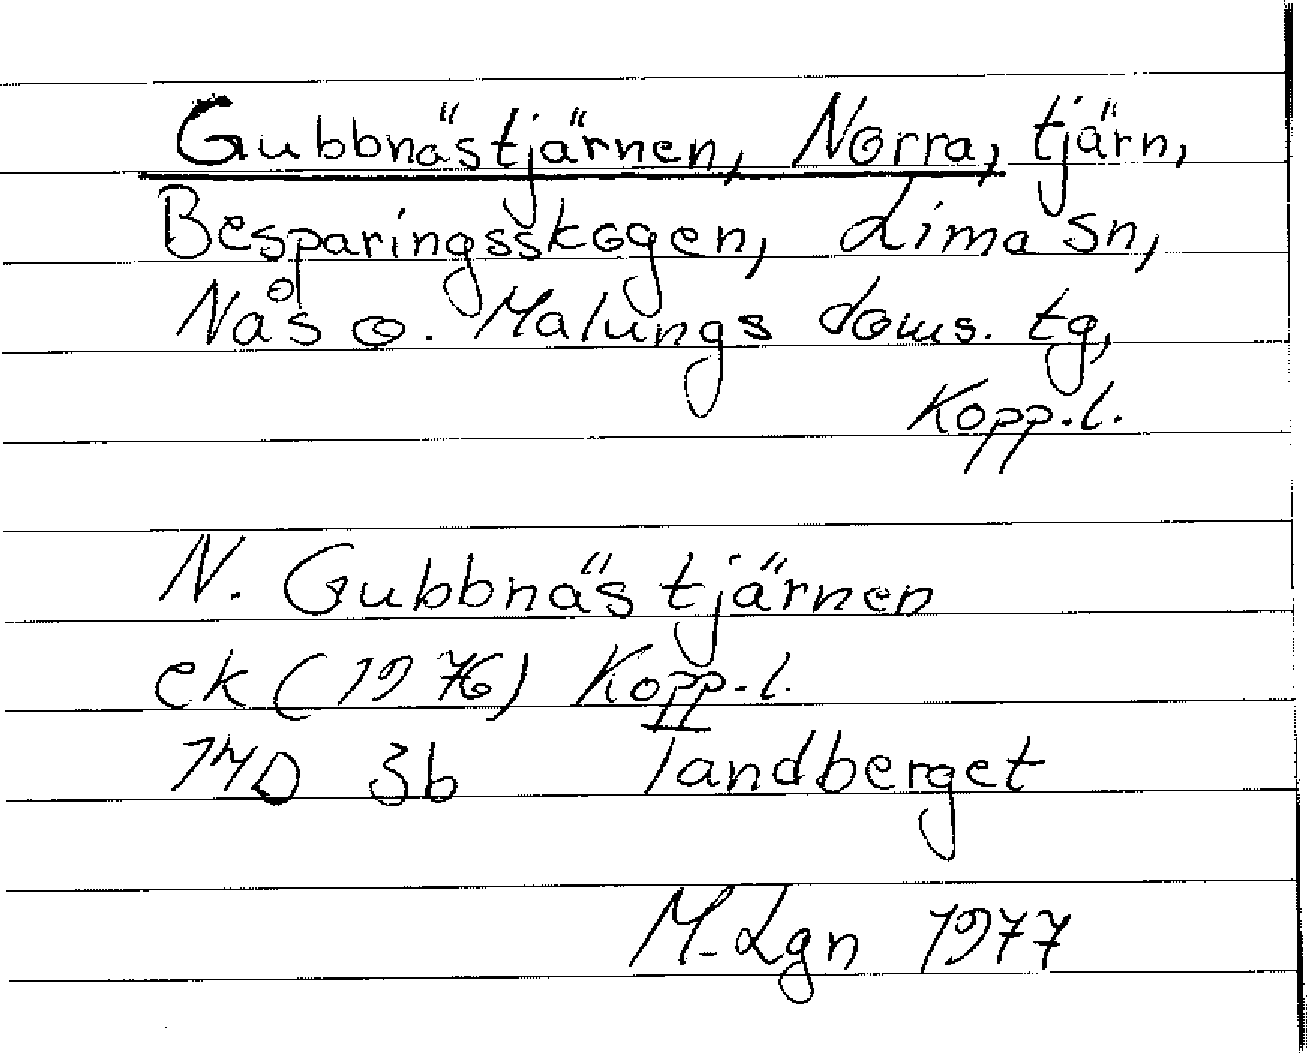 Gubbnästjärnen, Norra, tjärn,
Besparingsskogen, Lima sn,
Nås o. Malungs doms. tg,
Kopp.l.
N. Gubbnästjärnen
ek (1976) Kopp.l.
14D 3b Tandberget
M-Lgn 1977